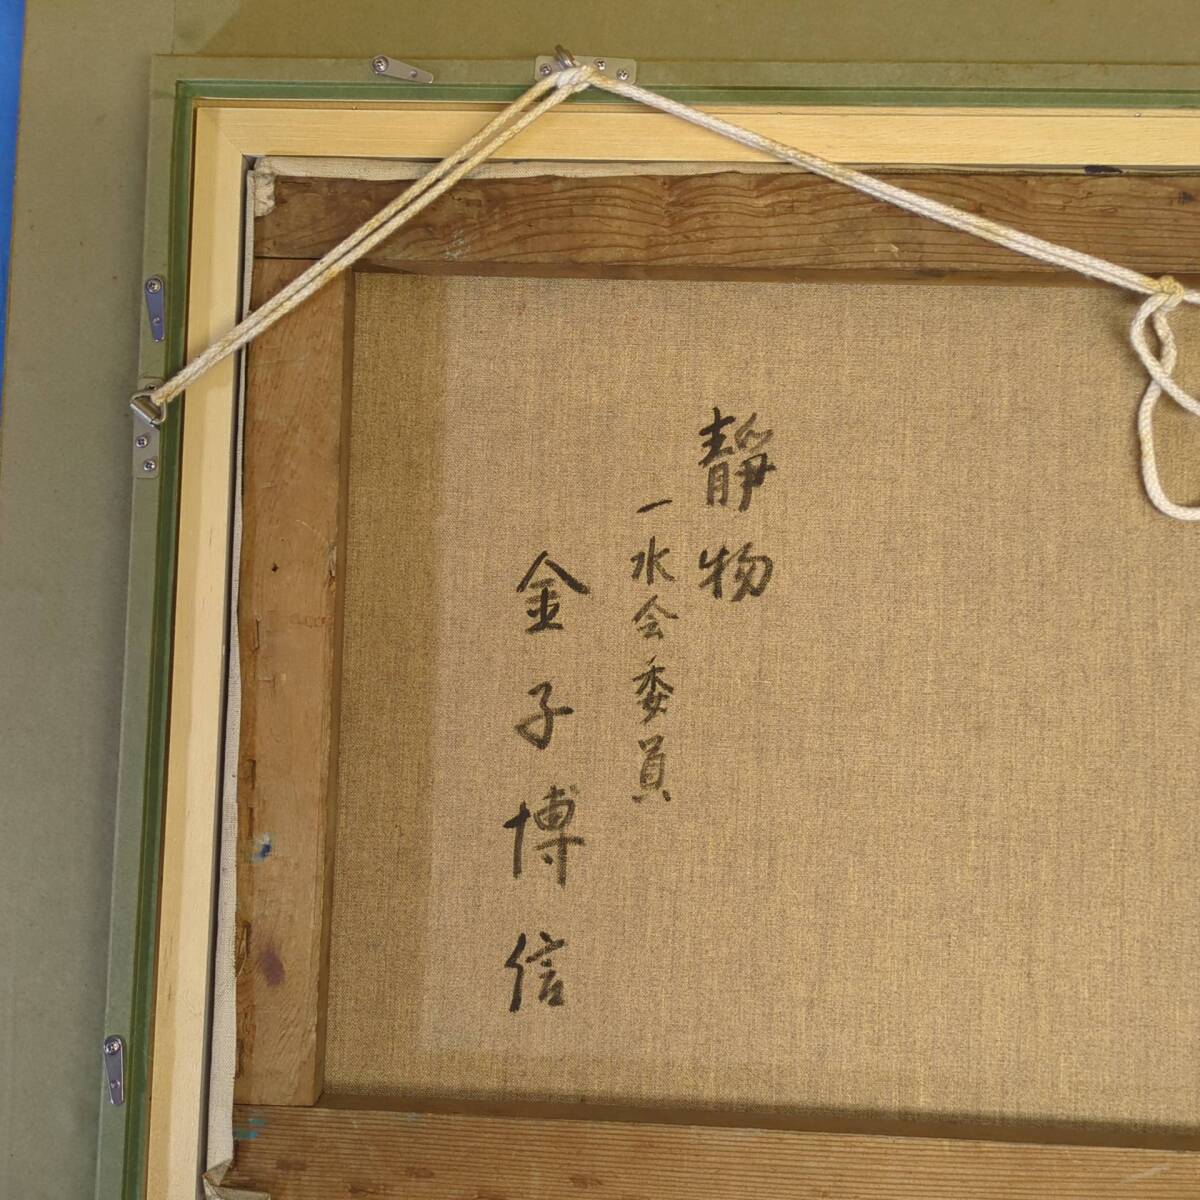 靜物
一水会委員
金子博信